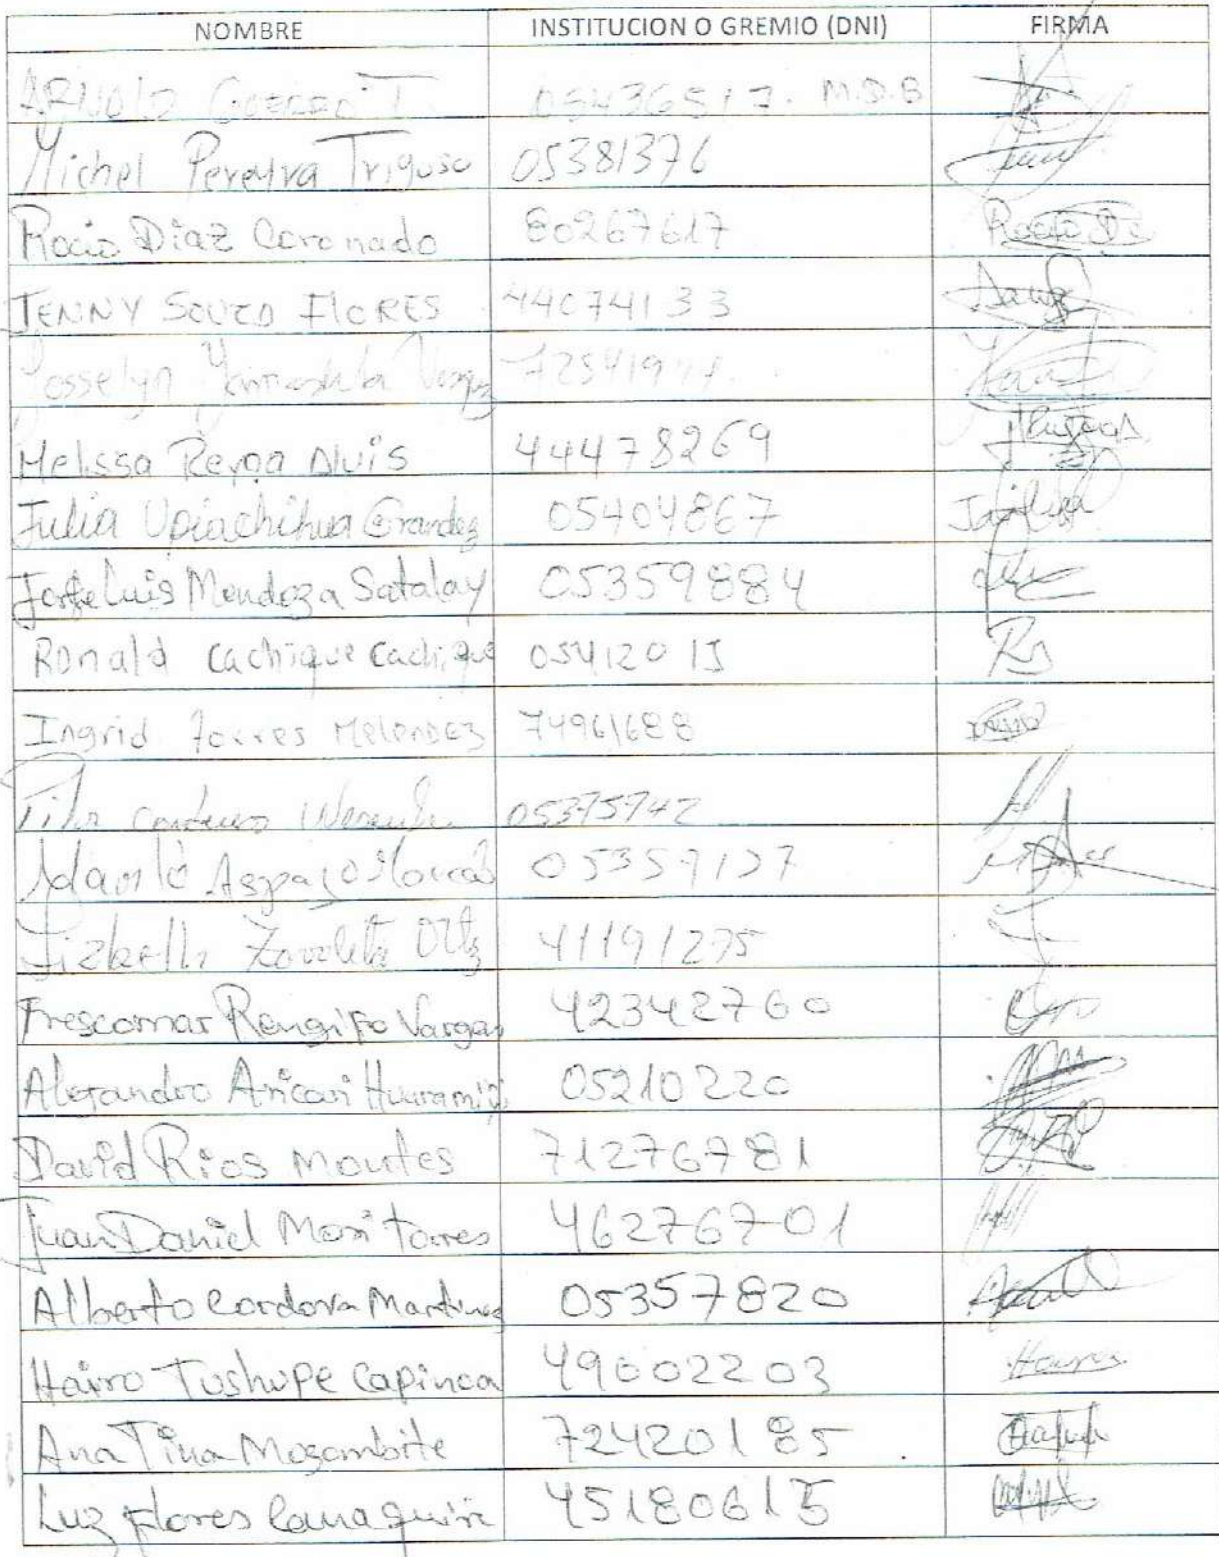 NOMBRE INSTITUCION O GREMIO (DNI) FIRMA
ARNOLD T. 05436517. M.D.B
Michel Pereyra Trigoso 05381376
Rocio Diaz Coronado 80267617 Rocio D.
JENNY SOUZA FLORES 44074133
Josselyn 
Melissa Reyna Aluis 44478269
Julia Upiachihua Grandez 05404867
Jorge Luis Mendoza Satalay 05359884
Ronald Cachique Cachique 05412015
Ingrid Torres Melendez 74961688
05375742
Aspajo 05359127
Lizbeth Zavaleta Ortiz 41191275
Frescomar Rengifo Vargas 42342760
Alejandro Aricari 05210220
David Rios Montes 71276781
Juan Daniel Mori Torres 46276701
Alberto Cordova Martinez 05357820
Hairo Tushupe Capinoa 49002203
Ana Tina Mozombite 72420185
Luz Flores Canaquiri 45180615